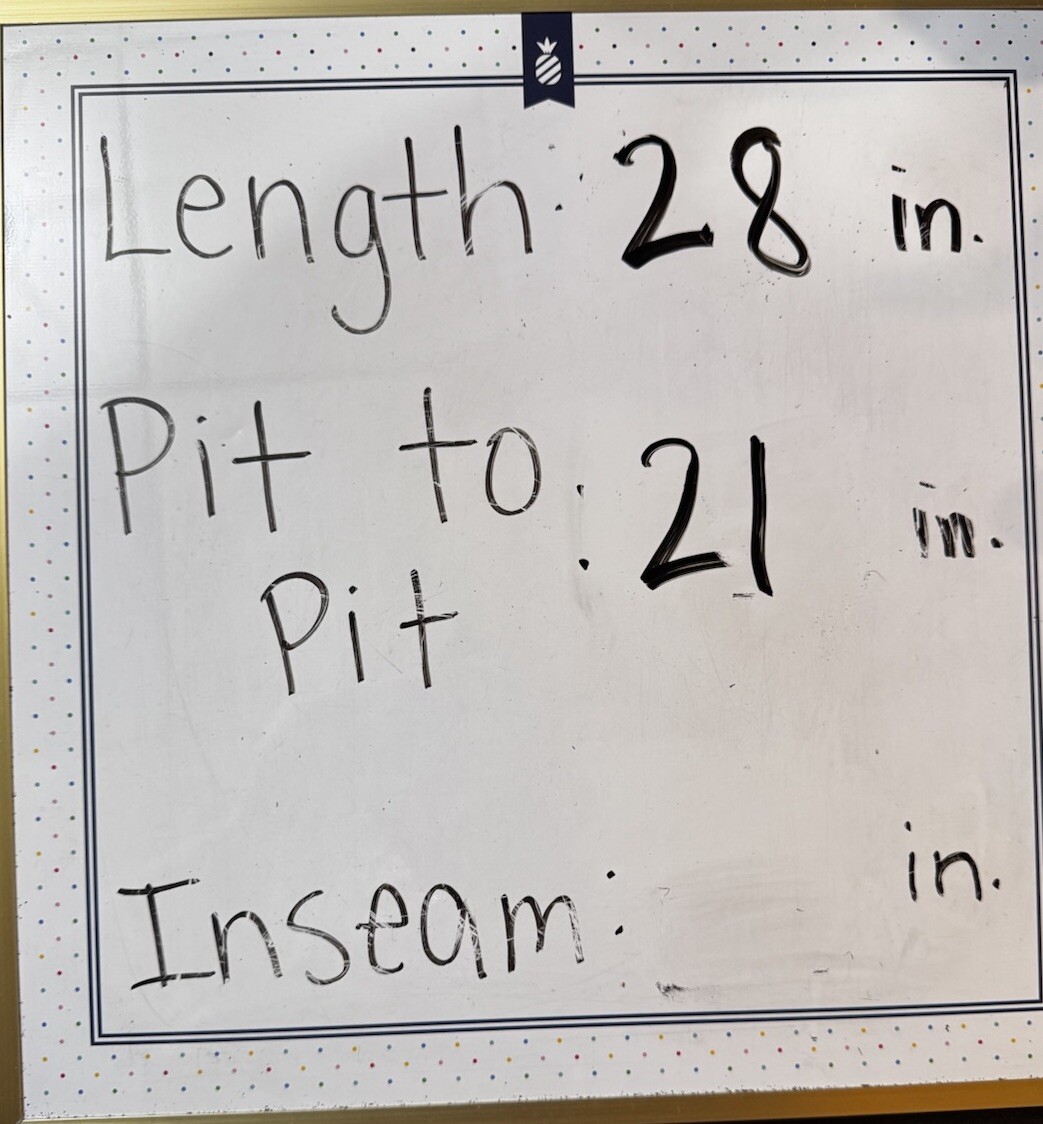 Length: 28 in.
Pit to : 21 in.
Pit
Inseam: in.